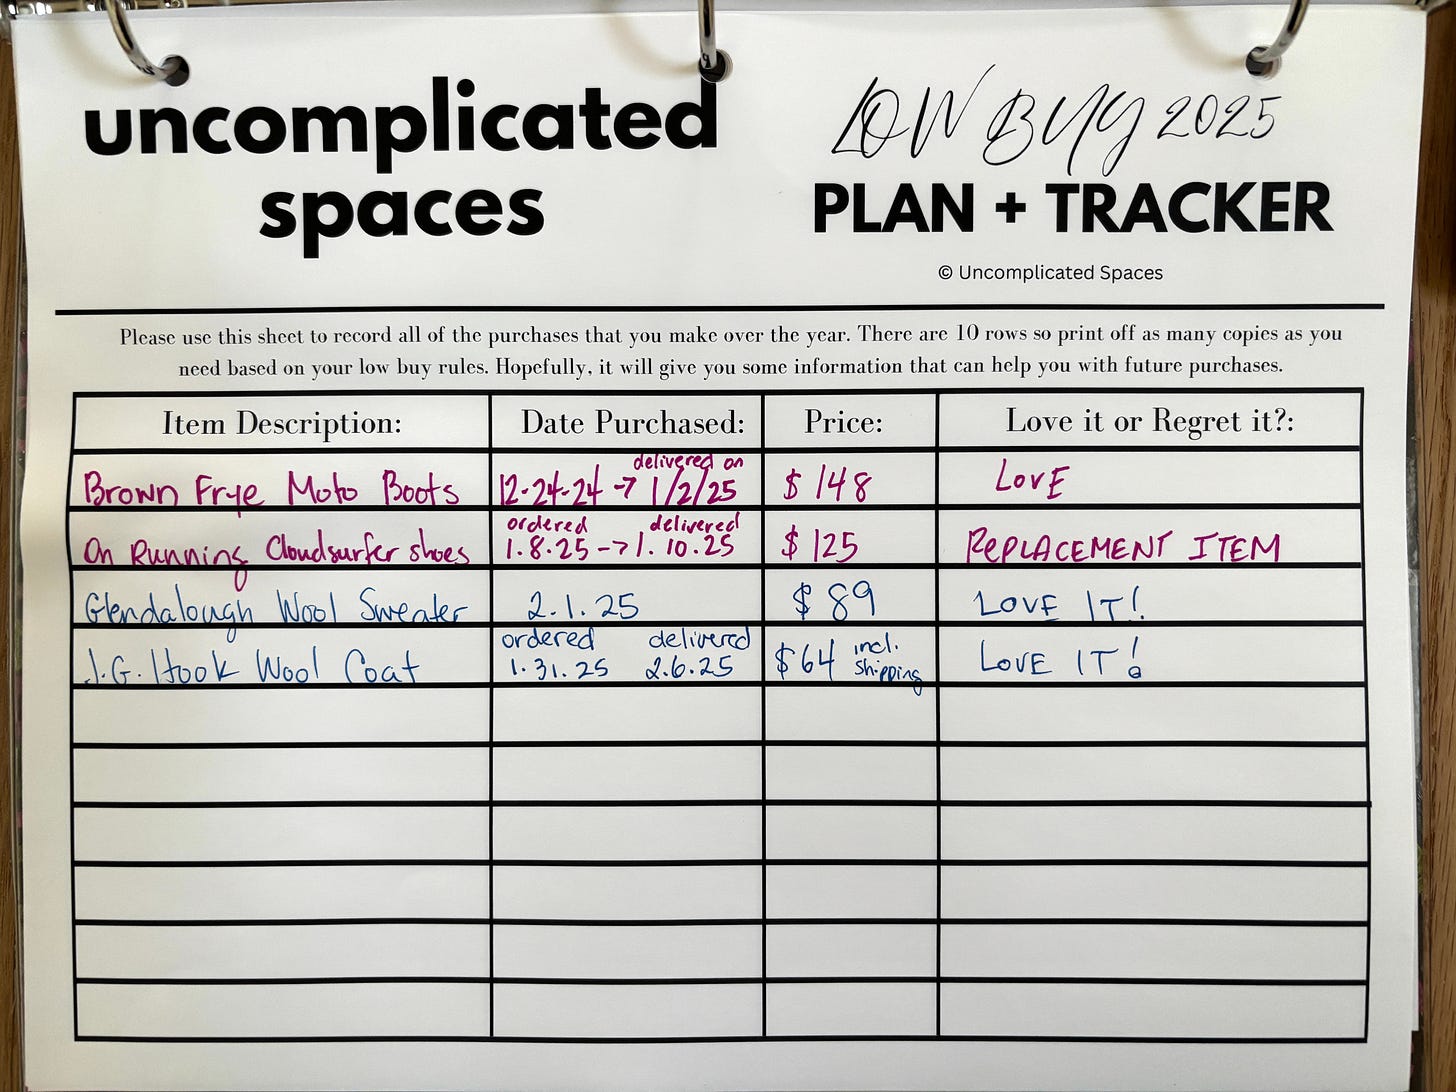 uncomplicated
spaces
LOW BUY 2025
PLAN + TRACKER
© Uncomplicated Spaces
Please use this sheet to record all of the purchases that you make over the year. There are 10 rows so print off as many copies as you
need based on your low buy rules. Hopefully, it will give you some information that can help you with future purchases.
Item Description: Date Purchased: Price: Love it or Regret it?:
delivered on
Brown Frye Moto Boots 12-24-24 → 1/2/25 $148 LOVE
ordered delivered
On Running Cloudsurfer shoes 1.8.25 → 1.10.25 $125 REPLACEMENT ITEM
Glendalough Wool Sweater 2.1.25 $89 LOVE IT!
ordered delivered incl.
J.G. Hook Wool Coat 1.31.25 2.6.25 $64 shipping LOVE IT!